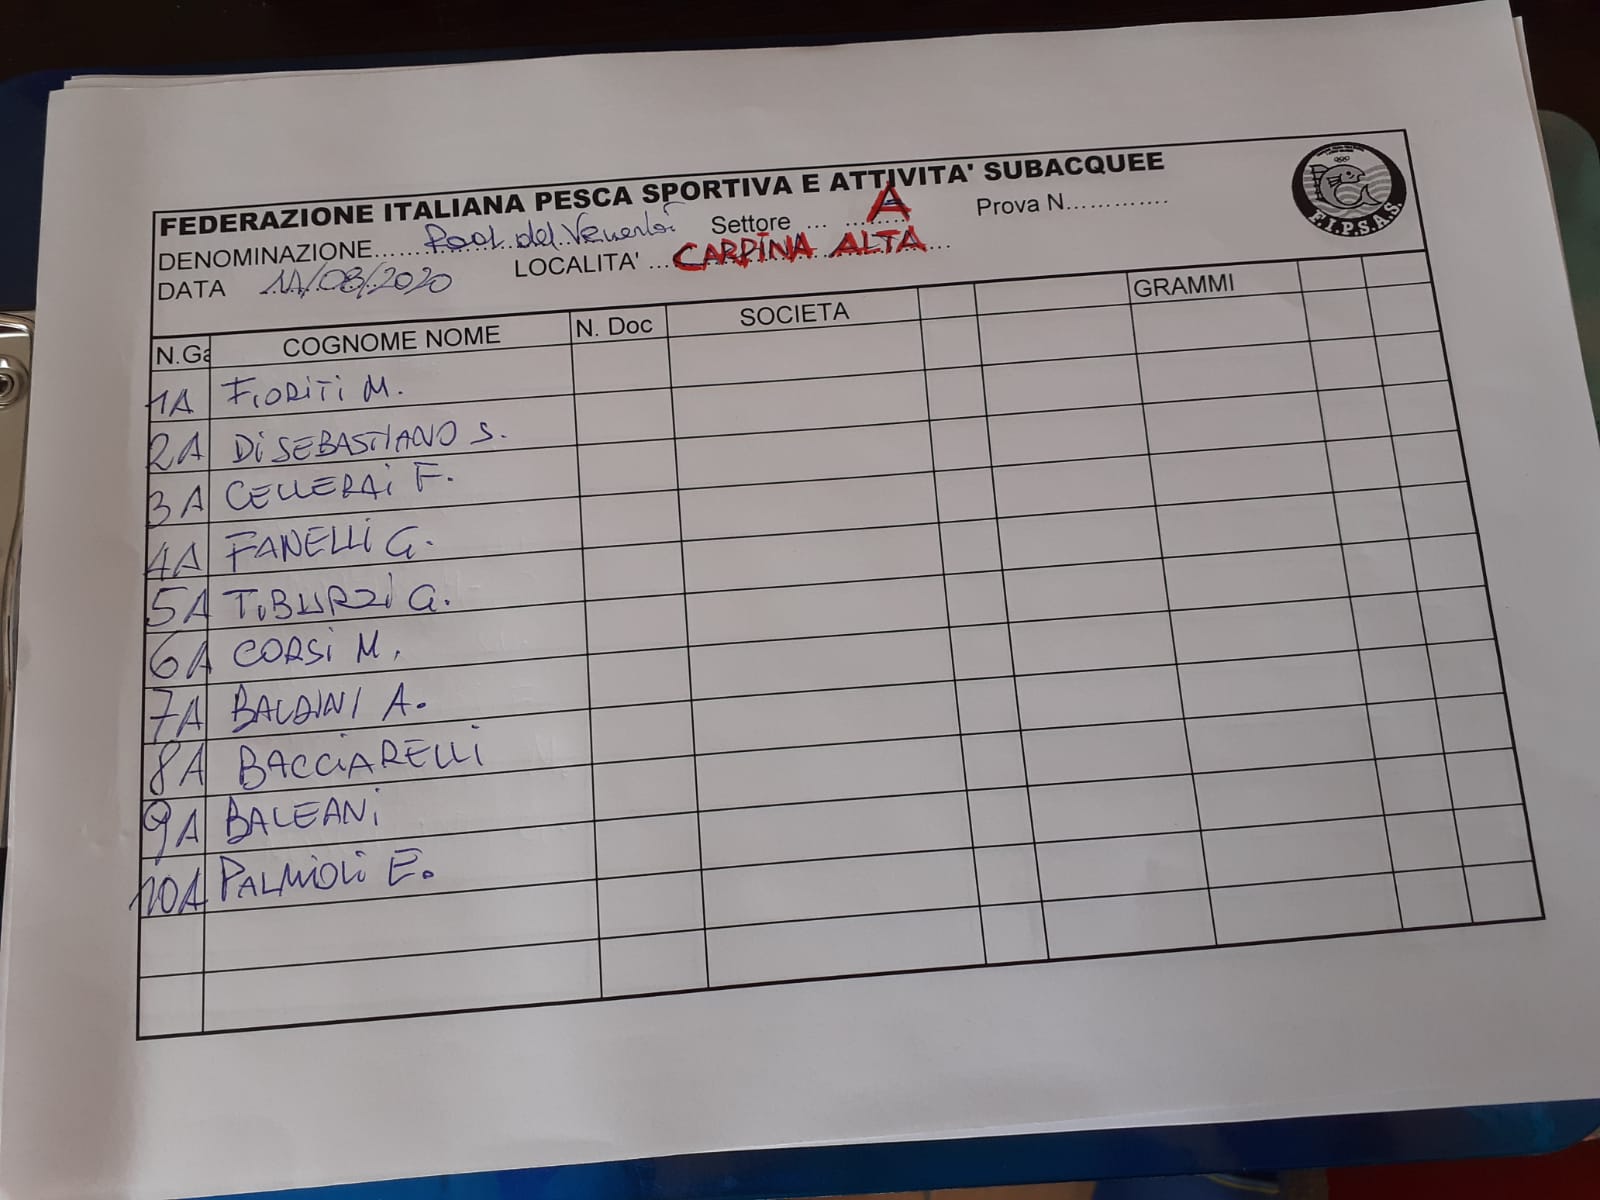 FEDERAZIONE ITALIANA PESCA SPORTIVA E ATTIVITA' SUBACQUEE
DENOMINAZIONE............ Pool del Venerdì Settore .... A Prova N.............
DATA 11/08/2020 LOCALITA' ... CARPINA ALTA ...
F.I.P.S.A.S.
N.Ga COGNOME NOME N. Doc SOCIETA GRAMMI
1A FIORITI M.
2A DI SEBASTIANO S.
3A CELLERAI F.
4A FANELLI G.
5A TIBURZI G.
6A CORSI M.
7A BALDINI A.
8A BACCIARELLI
9A BALEANI
10A PALMIOLI E.